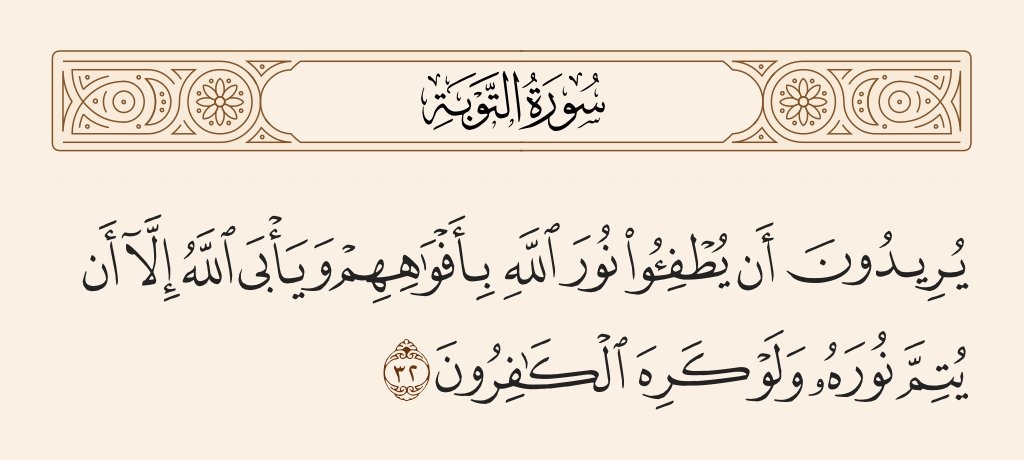 سُورَةُ التَّوْبَةِ
يُرِيدُونَ أَن يُطْفِـُٔوا۟ نُورَ ٱللَّهِ بِأَفْوَٰهِهِمْ وَيَأْبَى ٱللَّهُ إِلَّآ أَن
يُتِمَّ نُورَهُۥ وَلَوْ كَرِهَ ٱلْكَـٰفِرُونَ ٣٢